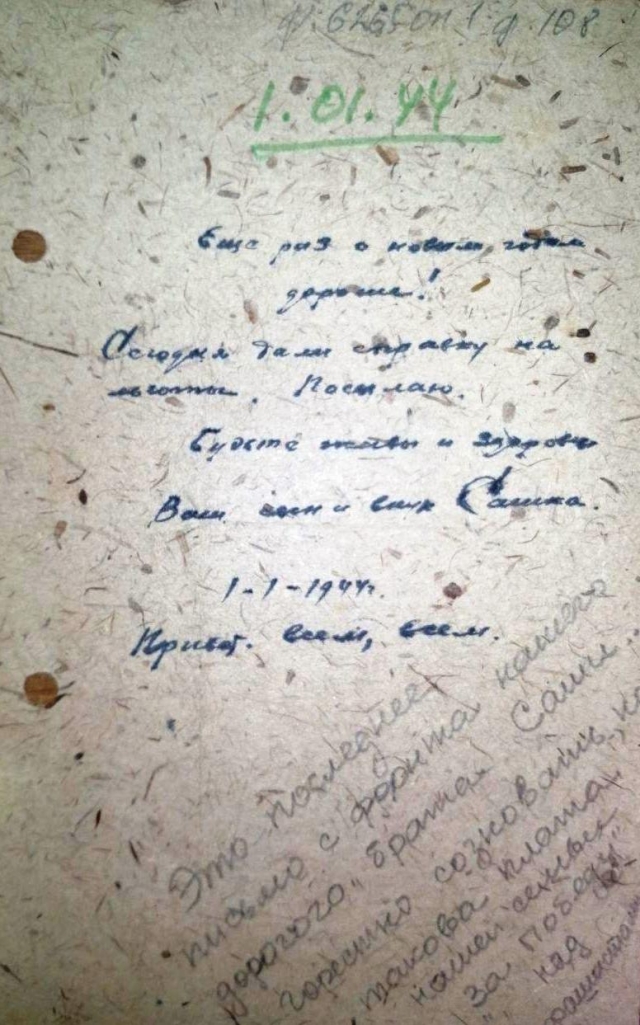 ф. 6265 оп 1 д. 108
1.01.44
Еще раз с новым годом
дорогие!
Сегодня дали справку на
льготы. Посылаю.
Будьте живы и здоровы
Ваш сын и внук Сашка.
1-1-1944г.
Привет. всем, всем.
Это последнее
письмо с фронта нашего
дорогого брата Саши.
горестно сознавать,
такова плата
нашей семьи
за Победу
над
фашистами